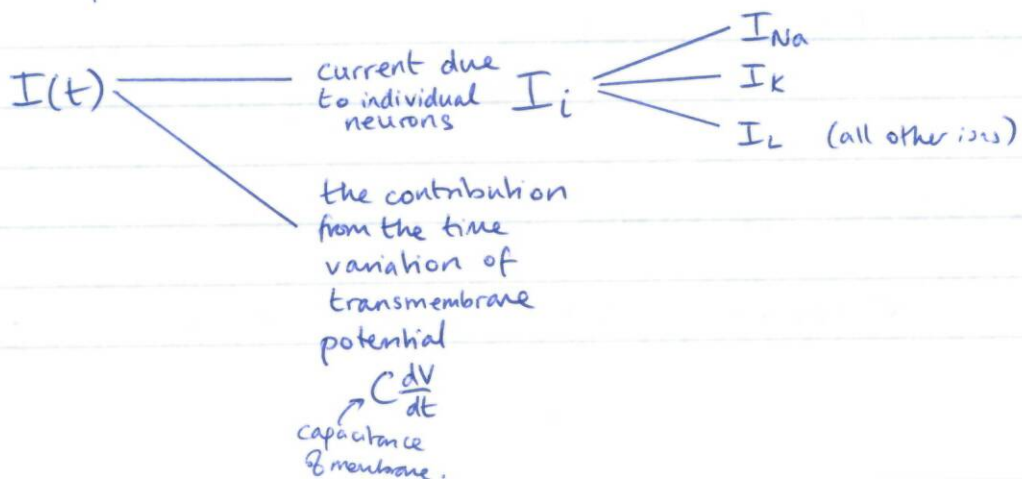 I(t)
current due
to individual
neurons
I_i
I_Na
I_K
I_L (all other ions)
the contribution
from the time
variation of
transmembrane
potential
C dV/dt
capacitance
of membrane.